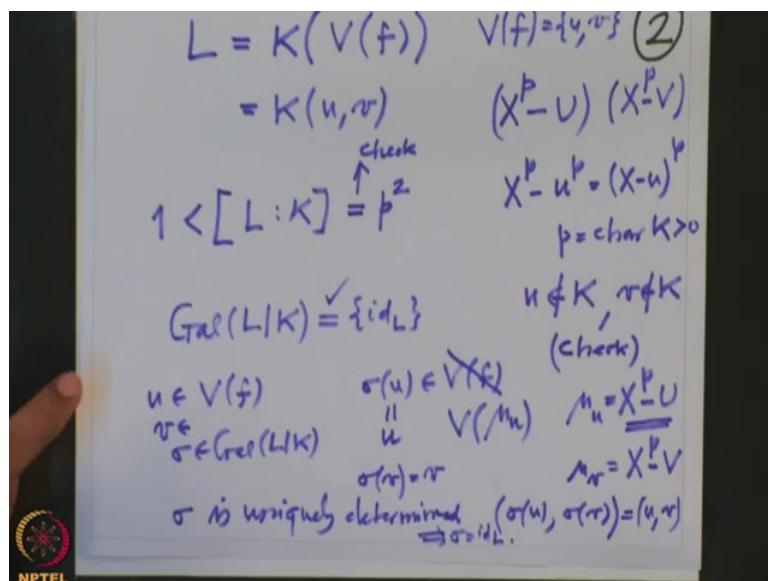 L = K(V(f)) V(f)={u,v} 2
= K(u,v) (X^p-U) (X^p-V)
check
↑
1 < [L:K] = p^2 X^p-u^p=(X-u)^p
p=char K>0
u∉K, v∉K
Gal(L|K) = {id_L} ✓
(check)
u ∈ V(f) σ(u) ∈ V(f) μ_u=X^p-U
v ∈ = V(μ_u)
σ∈Gal(L|K) u μ_v=X^p-V
σ(v)=v
σ is uniquely determined (σ(u), σ(v))=(u,v)
⇒σ=id_L.
NPTEL